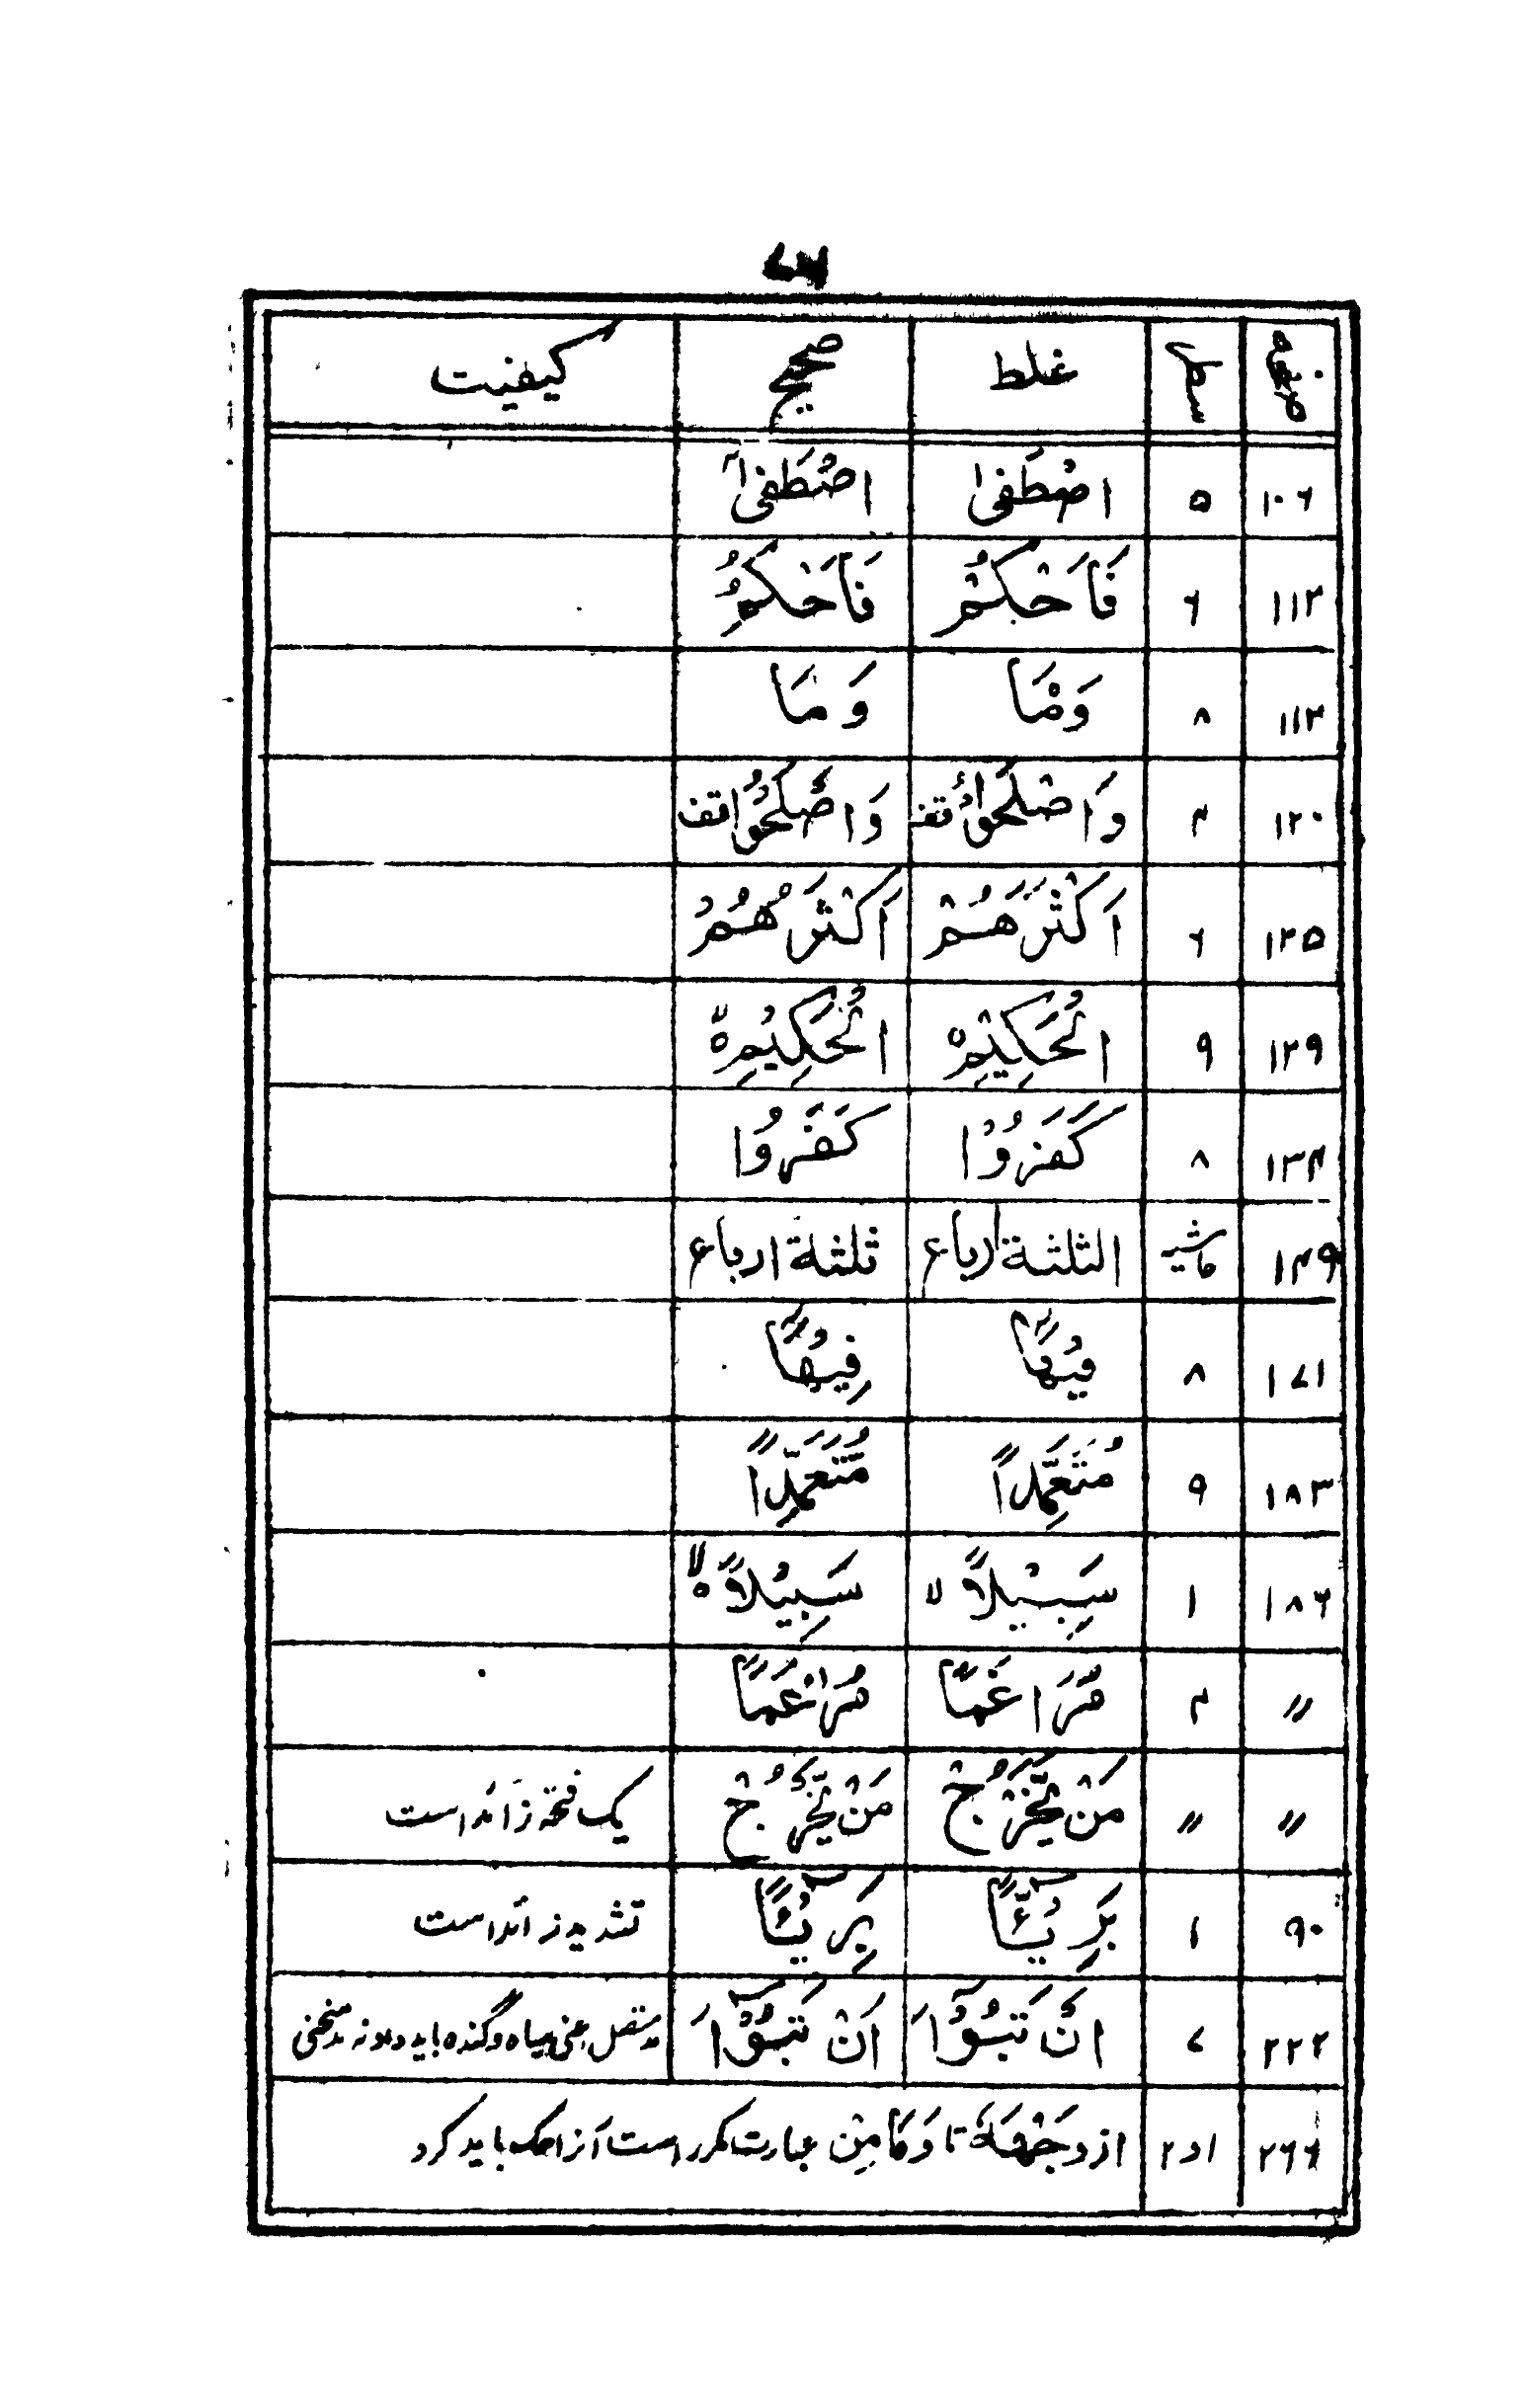 صفحه سطر غلط صحیح کیفیت
۱۰۶ ۵ اصْطَفٰی اصْطَفٰی
۱۱۲ ۶ فَاَحْکُمْ فَاَحْکُمُ
۱۱۲ ۸ وَمْا وَمَا
۱۲۰ ۴ وَاَصْلَحُوْا قف وَاَصْلَحُوْا قف
۱۲۵ ۶ اَکْثَرَهُمْ اَکْثَرُهُمْ
۱۲۹ ۹ الْحَکِیْمِ الْحَکِیْمِ
۱۳۴ ۸ کَفَرُوْا کَفَرُوْا
۱۴۹ حاشیه الثلثة ارباع ثلثة ارباع
۱۷۱ ۸ فیْهَا فِیْهَا
۱۸۳ ۹ مُتَعَمِّدًا مُتَعَمِّدًا
۱۸۶ ۱ سَبِیْلًا لا سَبِیْلًا لا
〃 ۴ مُرَاغَمًا مُرٰغَمًا
〃 〃 مَنْ یَّخْرُجْ مَنْ یَّخْرُجْ یک فتحه زائد است
۹۰ ۱ بَرِیْئًا بَرِیْئًا تشدید زائد است
۲۲۲ ۷ اَنْ تَبُوْاَ اَنْ تَبُوْاَ مد متصل یعنی سیاه و گنده باید داد نه مد منحنی
۲۶۶ ۱و۲ از وَجْهَهٗ تا وَمَا مِنْ عبارت مکرر است آنرا حک باید کرد